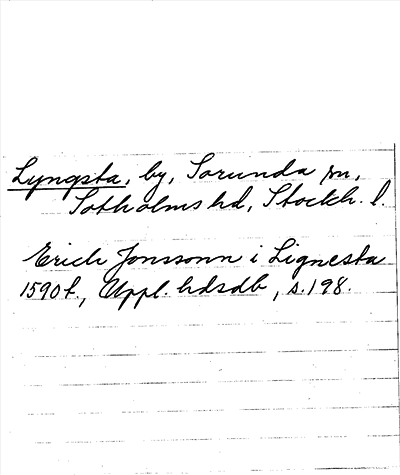 Lyngsta, by, Sorunda sn,
Sotholms hd, Stockh. l.
Erich Jonssonn i Lignesta
1590 f., Uppl. hdsdb, s. 198.